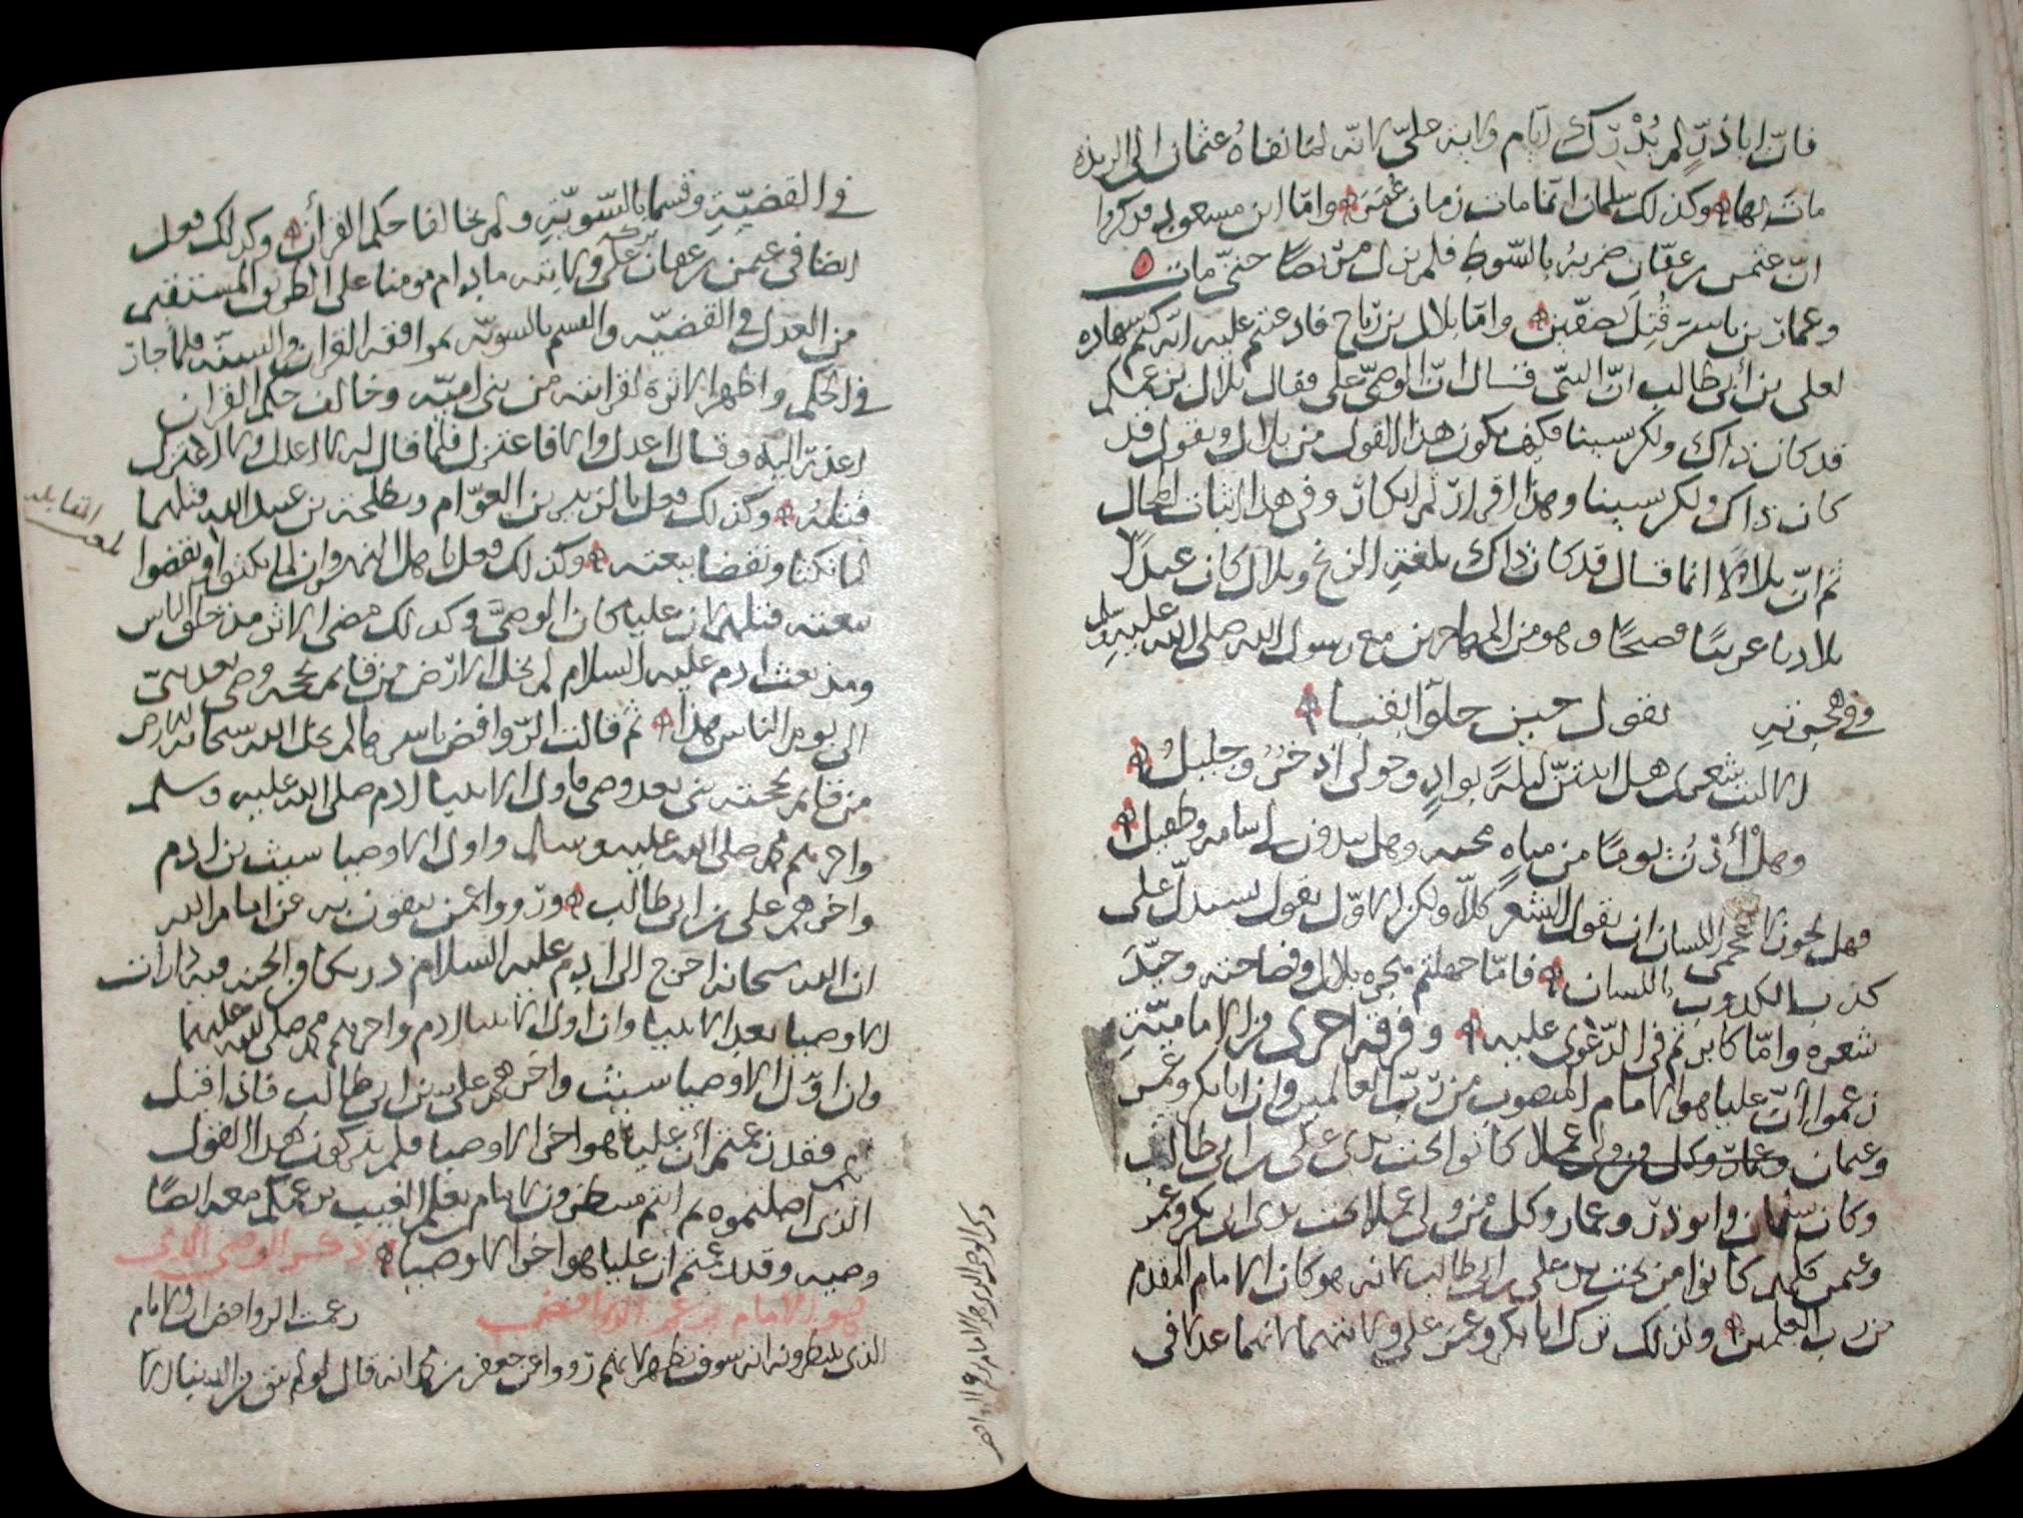 فانّ اباذرٍّ لم يُدْرِك ايام ولاية عليّ لانّه لمّا نفاهُ عثمان الى الربذه
ماتَ بها وكذلك سلمان انّما مات زمان عُمَرَ وامّا ابن مسعود فذكروا
انّ عثمن بن عفّان ضربهُ بالسّوط فلم يزل حتّى مات
وعمار بن ياسر قُتِلَ بصفّين وامّا بلال بن رباح فادعيتم عليه انّه كتم شهاده
لعلي بن أبي طالب انّ النبيّ قال انّ الوصيّ علي فقال بلال بزعمكم
قد كان ذاك ولكن نسينا فكيف يكون هذا القول من بلال ويقول قد
كان ذاك ولكن نسينا وهذا اقرارٌ ثم انكارٌ وفي هذا اثبات المحال
ثم انّ بلالاً انما قال قد كان ذاك بلغة الزنج وبلال كان عبدًا
بلاديا عربيًا فصيحًا وهو من المهاجرين مع رسول الله صلى الله عليه وسلم
وفي هجرته يقول حين
الا ليت شعري هل ابيتنّ ليلةً بوادٍ وحولي اذخرٌ وجليلُ
وهل أرِدنْ يومًا من مياهِ مجنه وهل يبدون لي شامه وطفيل
فهل يجوز لاعجمي اللسان ان يقول الشعر كلّا ولكن الاوّل يقول يستدلّ على
كذب الكذوب باللسان فامّا جهلتم هجره بلال وفصاحته وجيّدَ
شعره وامّا كابرتم في الدّعوى عليه وفرقه اخرى من الاماميّةِ
زعموا أنّ عليا هو الامام المنصوب من ربّ العالمين وان ابابكر وعمر
وعثمان وعمار وكل من ولي عملا كانوا تحت يدي علي بن ابي طالب
وكان سلمان وابو ذرّ وعمار وكل من ولي عملا تحت يدي ابي بكر وعمر
وعثمن فكلهم كانوا من تحت يد علي بن ابي طالب لانه هو كان الامام المقدم
من رب العلمين ولذلك ترك ابابكر وعمر على ولايتهما لانهما عدلا في
في القضيّةِ وقسما بالسّويّةِ ولم يخالفا حكم القرأن وكذلك فعل
ايضا في عثمن بن عفان تركه على ولايته مادام مومنا على الطريق المستقيم
من العدل في القضيّه والقسم بالسويّه بموافقه القران والسنّه فلما جارَ
في الحكم واظهر الاثرة لقرابته من بني اميّه وخالف حكم القران
اعذر اليه وقال اعدل والا فاعتزل فلمّا قال له لا اعدل ولا اعتزل
قتلهُ وكذلك فعل بالزبير بن العوّام وبطلحة بن عبيد الله قتلهما
لما نكثا ونقضا بيعته وكذلك فعل باهل النهروان لما نكثوا ونقضوا
بيعته قتلهم لان عليا كان الوصيَّ وكذلك مضى الاثر مذ خلق الناس
ومذ بعث ادم عليه السلام لم تخل الارض من قائم بحجه وصي بعد نبيّ
الى يوم الناس هذا ثم قالت الرّوافض باسرها لم يخل الله سبحانه الارض
من قائم بحجته نبي بعد وصي فاول الانبيا ادم صلى الله عليه وسلم
واخرهم محمد صلى الله عليه وسلم واول الاوصيا شيث بن ادم
واخرهم علي بن ابي طالب ورووا عمن يثقون به عن امام الله
ان الله سبحانه اخرج الى ادم عليه السلام من الجنه فيه
الاوصيا بعد الانبيا وان اول الانبيا ادم واخرهم محمد صلى الله عليهما
وان اوّل الاوصيا شيث واخرهم علي بن ابي طالب فاذا قيل
لهم فقد زعمتم أن عليا هو اخر الاوصيا فلم تذكرون هذا القول
الذي اصلتموه ثم انتم منتظرون لامام يعلم الغيب بزعمكم معه ايضًا
وصيه وقد زعمتم ان عليا هو اخر الاوصيا ذكر الوصي الذي
هو الامام بزعم الروافض زعمت الروافض ان الامام
الذي ينتظرونه انه سوف يظهر لانهم رووا عن جعفر بن محمد انه قال لو لم يبق من الدنيا الا